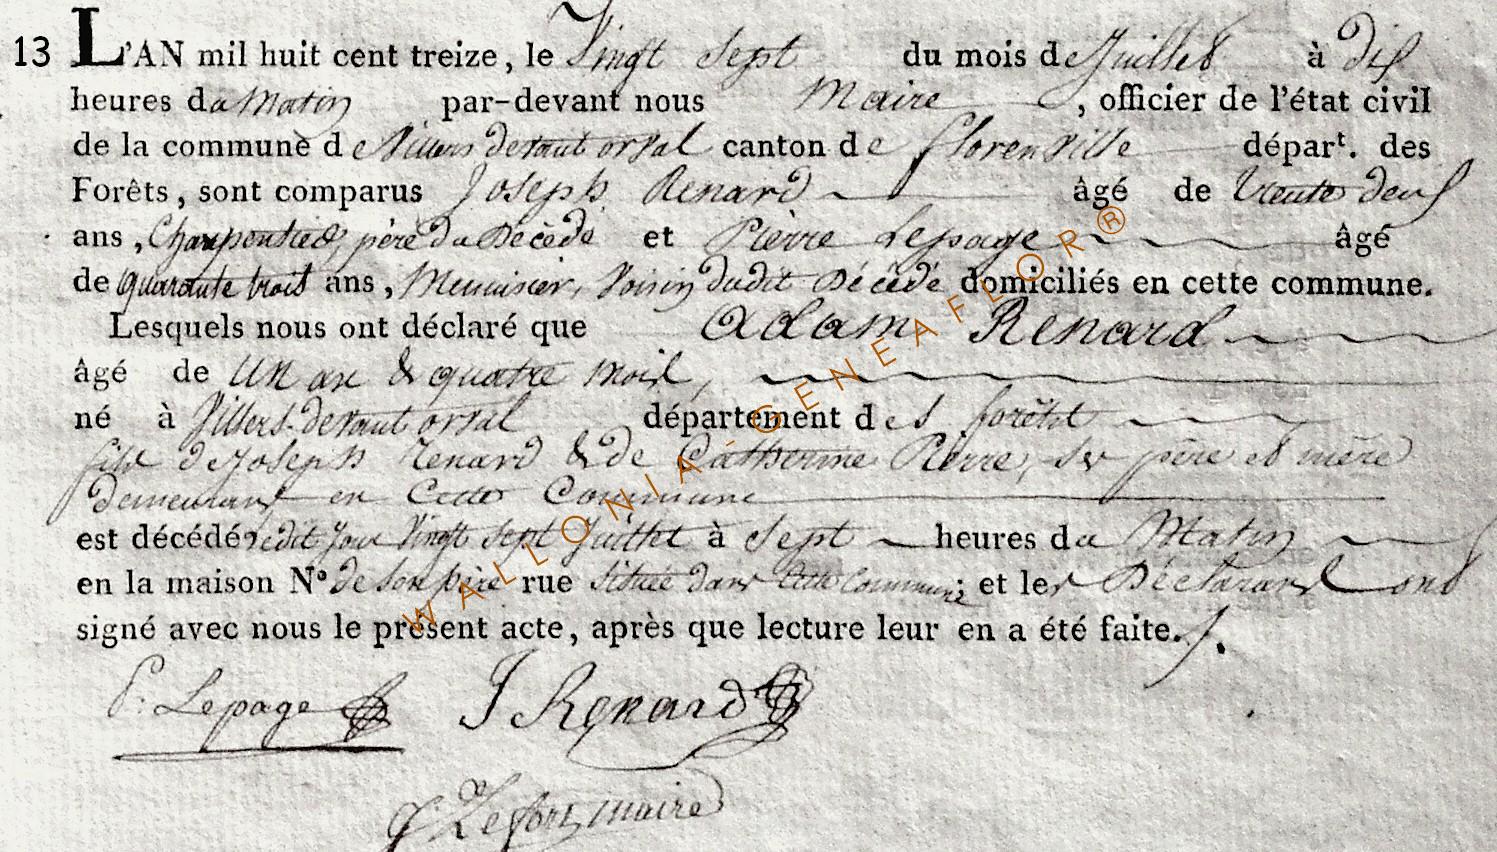 13 L'AN mil huit cent treize, le Vingt sept du mois de Juillet à dix
heures du Matin par-devant nous Maire, officier de l'état civil
de la commune de Villers devant orval canton de florenville départ. des
Forêts, sont comparus Joseph Renard âgé de trente deux
ans, Charpentier, père du Décédé et Pierre Lepage âgé
de quarante trois ans, Menuisier, Voisin dudit Décédé domiciliés en cette commune.
Lesquels nous ont déclaré que Adam Renard
âgé de un an & quatre mois,
né à Villers-devant orval département des forêts
fils de Joseph Renard & de Catherine Pierre, ses père et mère
demeurant en Cette Commune
est décédé ledit jour Vingt sept Juillet à sept heures du Matin
en la maison N° de son père rue située dans cette Commune; et les Déclarants ont
signé avec nous le présent acte, après que lecture leur en a été faite./.
P: Lepage J Renard
Lefort maire
WALLONIA-GENEAFLOR®